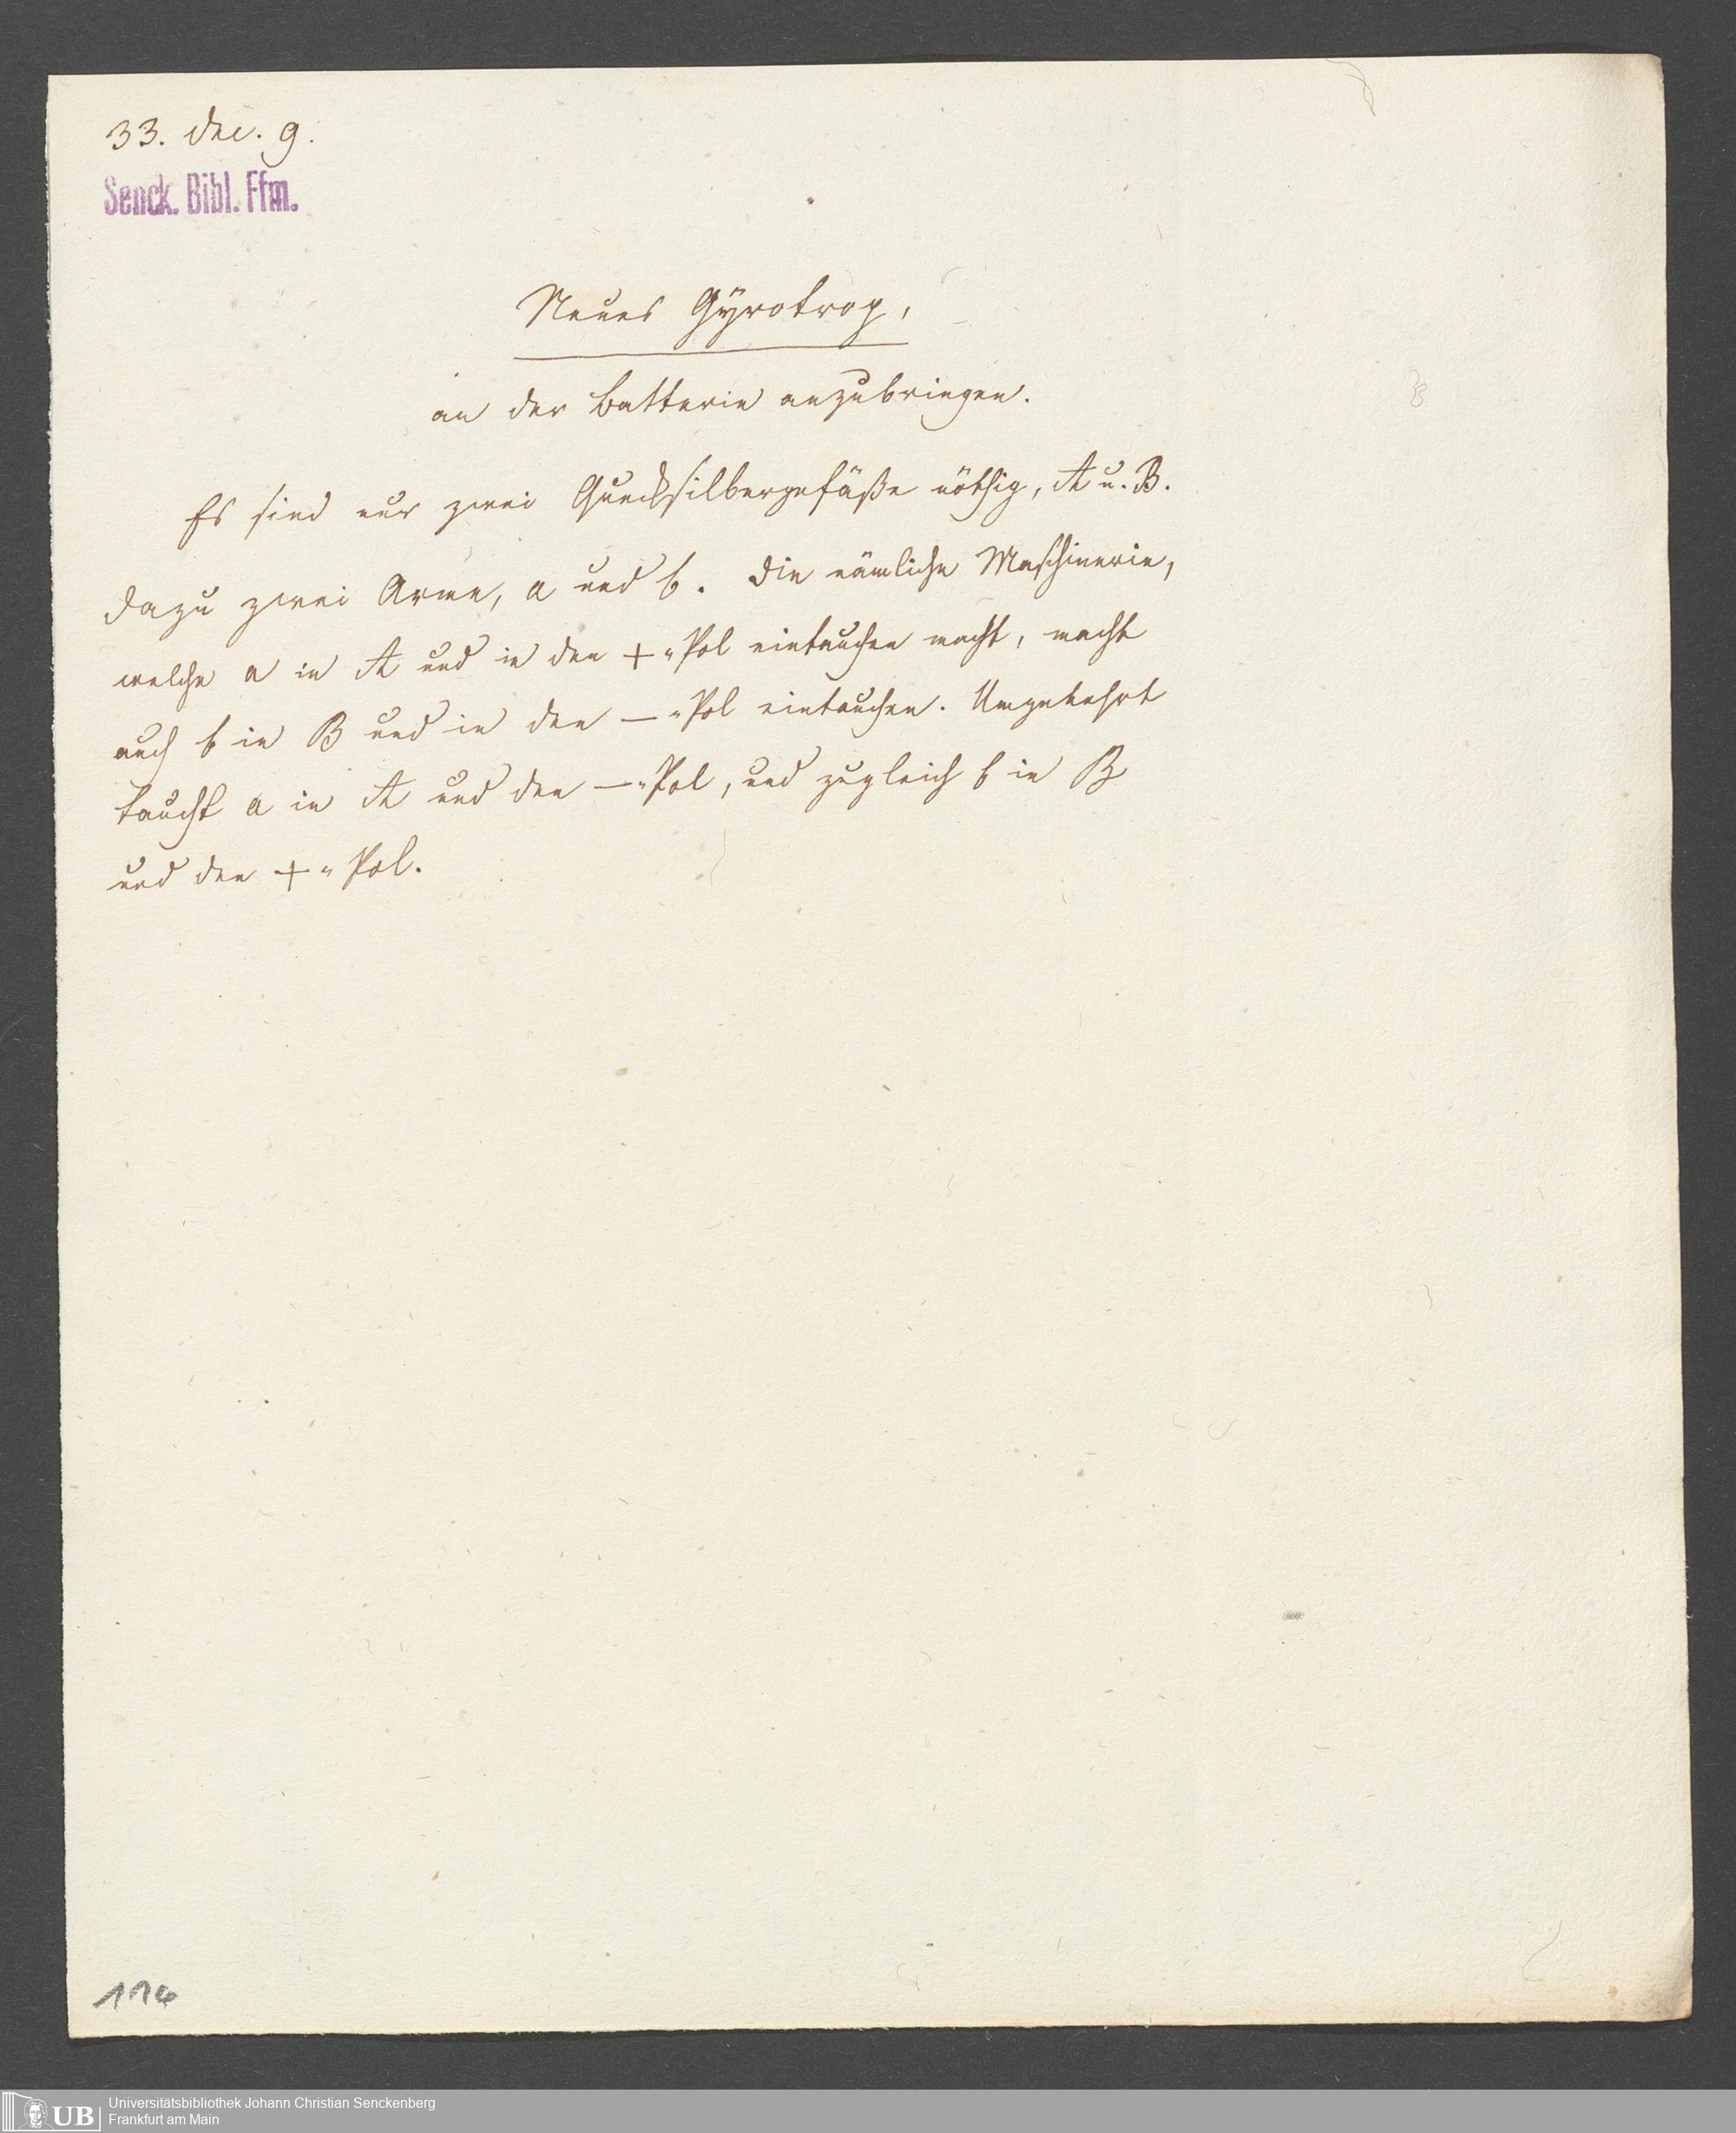 33. Dec. 9.
Senck. Bibl. Ffm.
Neues Gÿrotrop,
an der Batterie anzubringen.
Es sind nur zwei Quecksilbergefäße nöthig, A u. B.
Dazu zwei Arme, a und b. Die nämliche Maschinerie,
welche a in A und in den +-Pol eintauchen macht, macht
auch b in B und in den —-Pol eintauchen. Umgekehrt
taucht a in A und den —-Pol, und zugleich b in B
und den +-Pol.
UB
Universitätsbibliothek Johann Christian Senckenberg
Frankfurt am Main